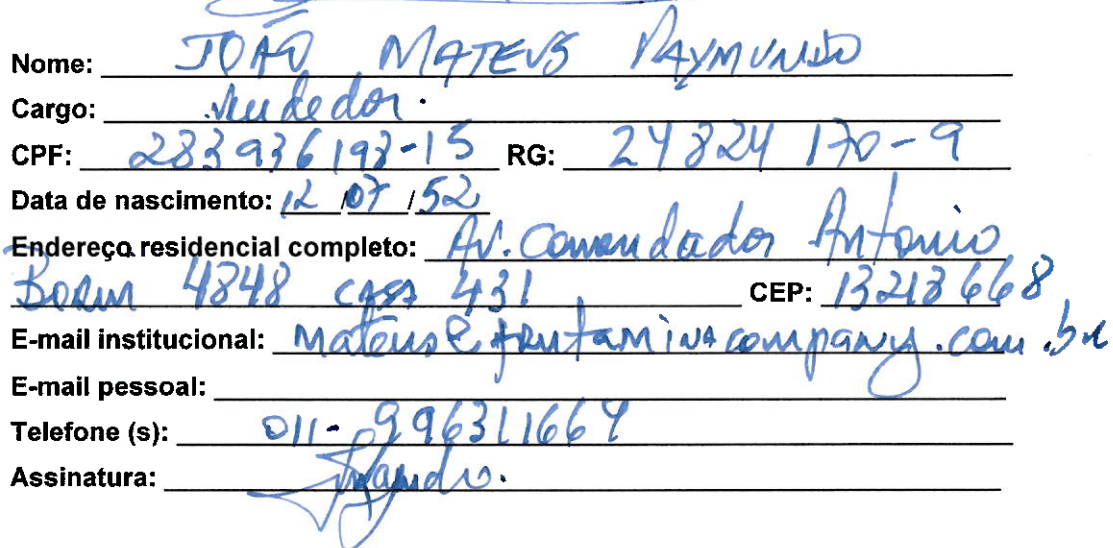 Nome: JOÃO MATEUS RAYMUNDO
Cargo: Vendedor.
CPF: 283936198-15 RG: 24824 170-9
Data de nascimento: 12/07/52
Endereço residencial completo: Av. Comendador Antonio
Borin 4348 CASA 431 CEP: 13213668
E-mail institucional: mateus@frutaminacompany.com.br
E-mail pessoal:
Telefone (s): 011-996311664
Assinatura: